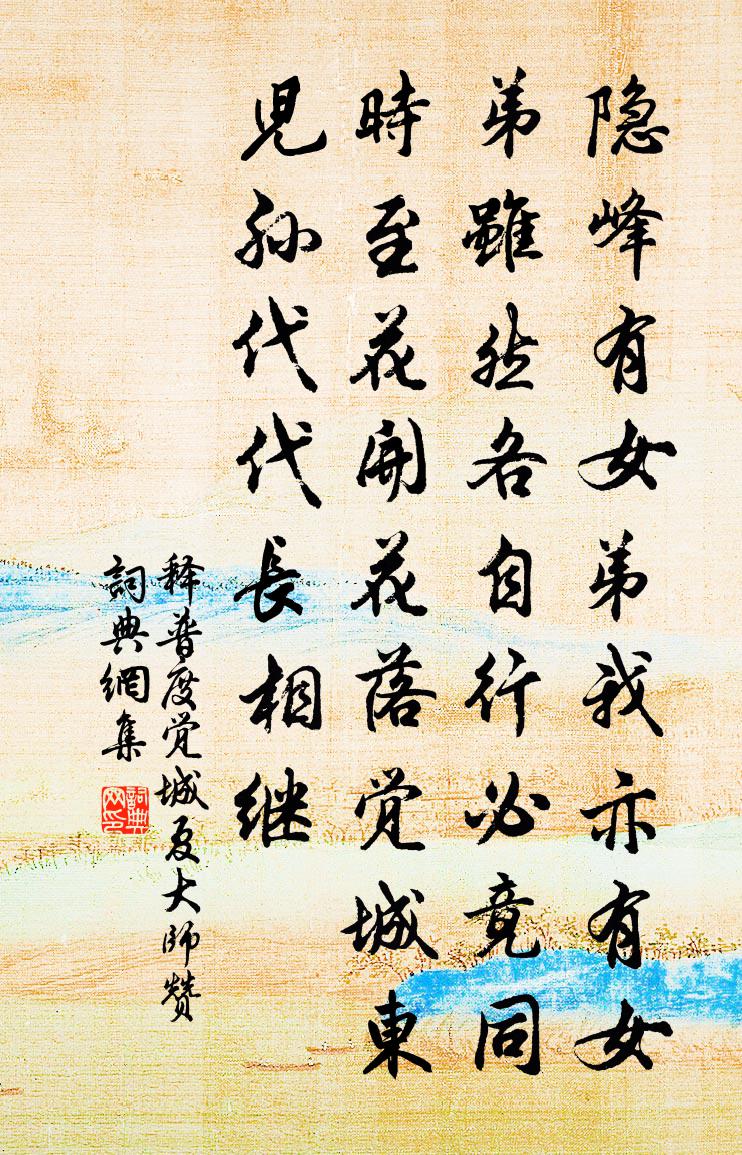 隐峰有女弟我亦有女
弟雖然各自行必竟同
時至花開花落觉城東
児孙代代長相继
释普度觉城夏大师赞
詞典網集
詞典网印